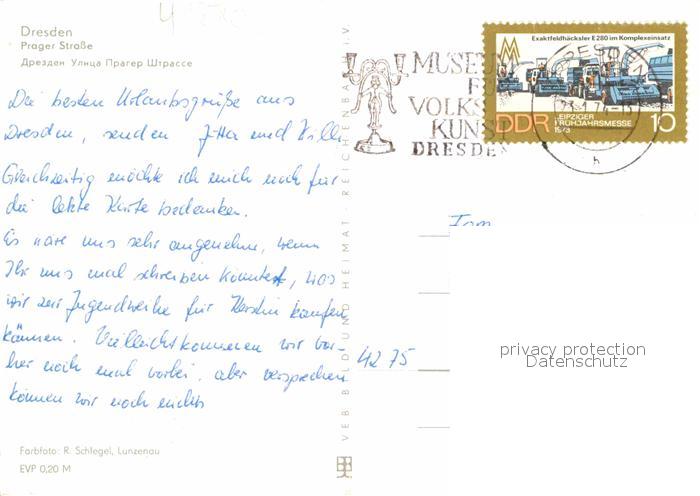 Dresden
Prager Straße
Дрезден Улица Прагер Штрассе
Die besten Urlaubsgrüße aus
Dresden, senden Jutta und Willi
Gleichzeitig möchte ich mich noch für
die letzte Karte bedanken.
Es wäre uns sehr angenehm, wenn
Ihr uns mal schreiben könntet, was
wir zur Jugendweihe für Kerstin kaufen
können. Vielleicht kommen wir vor-
her noch mal vorbei, aber versprechen
können wir noch nichts
Farbfoto: R. Schlegel, Lunzenau
EVP 0,20 M
VEB BILD UND HEIMAT REICHENBACH I. V.
MUSEUM
FÜR
VOLKS
KUNST
DRESDEN
Exaktfeldhäcksler E 280 im Komplexeinsatz
MM
DDR
LEIPZIGER
FRÜHJAHRSMESSE
1973
10
h
42 75
privacy protection
Datenschutz